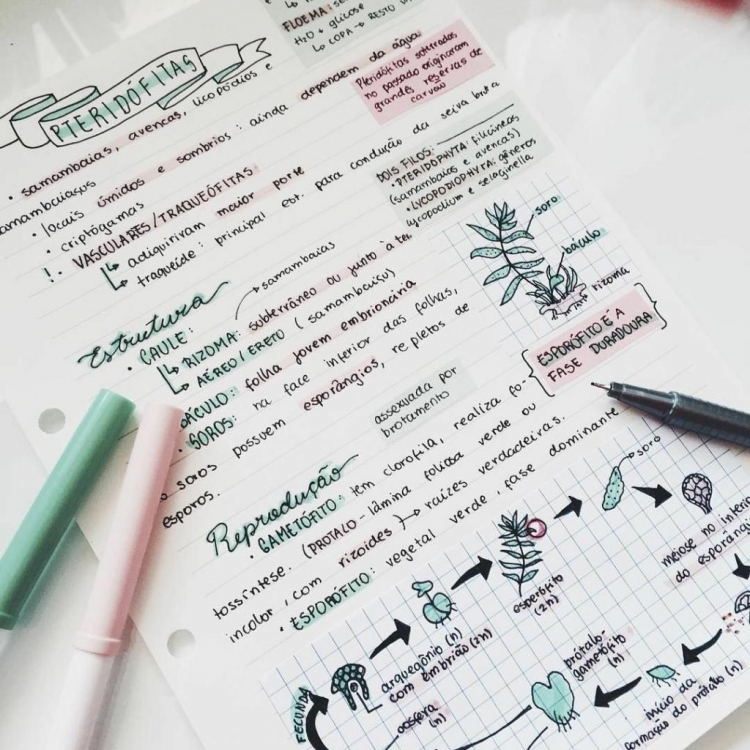 FLOEMA: se
H₂O + glicose
↳ COPA → RESTO
PTERIDÓFITAS
• samambaias, avencas, licopódios e
samambaiaçus
• locais úmidos e sombrios: ainda dependem da água
• criptógamas
!• VASCULARES/TRAQUEÓFITAS:
↳ adiquiriram maior porte
↳ traqueíde: principal est. para condução da seiva bruta
Pteridófitas soterradas
no passado originaram
grandes reservas de
carvão
DOIS FILOS:
• PTERIDOPHYTA: filicíneas
(samambaias e avencas)
• LYCOPODIOPHYTA: gêneros
lycopodium e selaginella
soro
báculo
rizoma
ESPORÓFITO É A
FASE DURADOURA
Estrutura
• CAULE:
→ samambaias
↳ RIZOMA: subterrâneo ou junto à ter
↳ AÉREO/ERETO (samambaiçu)
• BÁCULO: folha jovem embrionária
• SOROS: na face inferior das folhas,
soros possuem esporângios, repletos de
esporos.
assexuada por
brotamento
Reprodução
• GAMETÓFITO: tem clorofila, realiza fo-
tossíntese. (PROTALO - lâmina foliosa verde ou
incolor, com rizoides) → raízes verdadeiras.
• ESPORÓFITO: vegetal verde, fase dominante
soro
meiose no interi
do esporân
esporófito
(2n)
arquegônio (n)
com embrião (2n)
FECUNDA
oosfera
(n)
prótalo-
gametófito
(n)
início da
formação do prótalo (n)